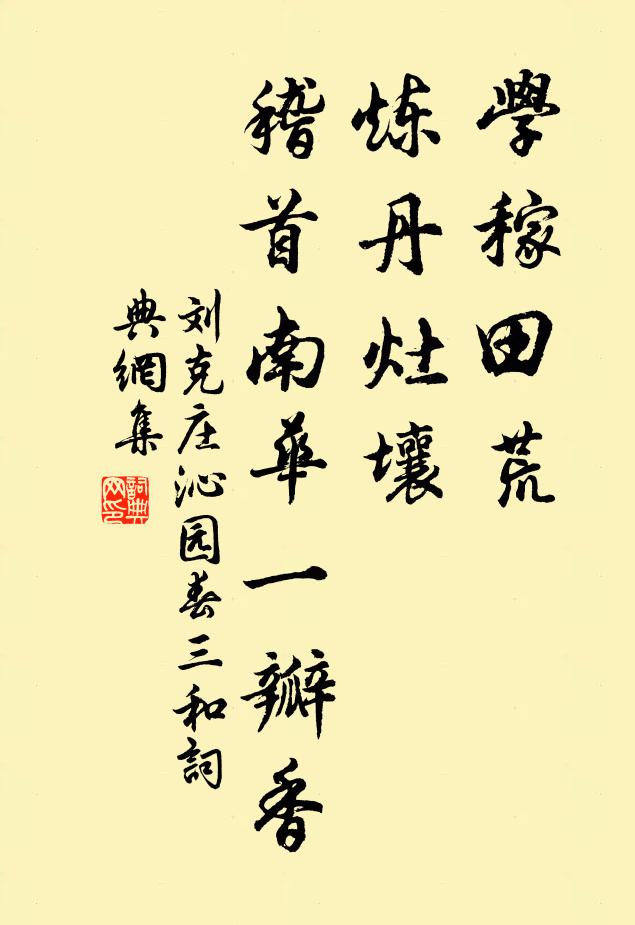 學稼田荒
炼丹灶壞
稽首南華一瓣香
刘克庄沁园春三和詞
典網集
詞典网印